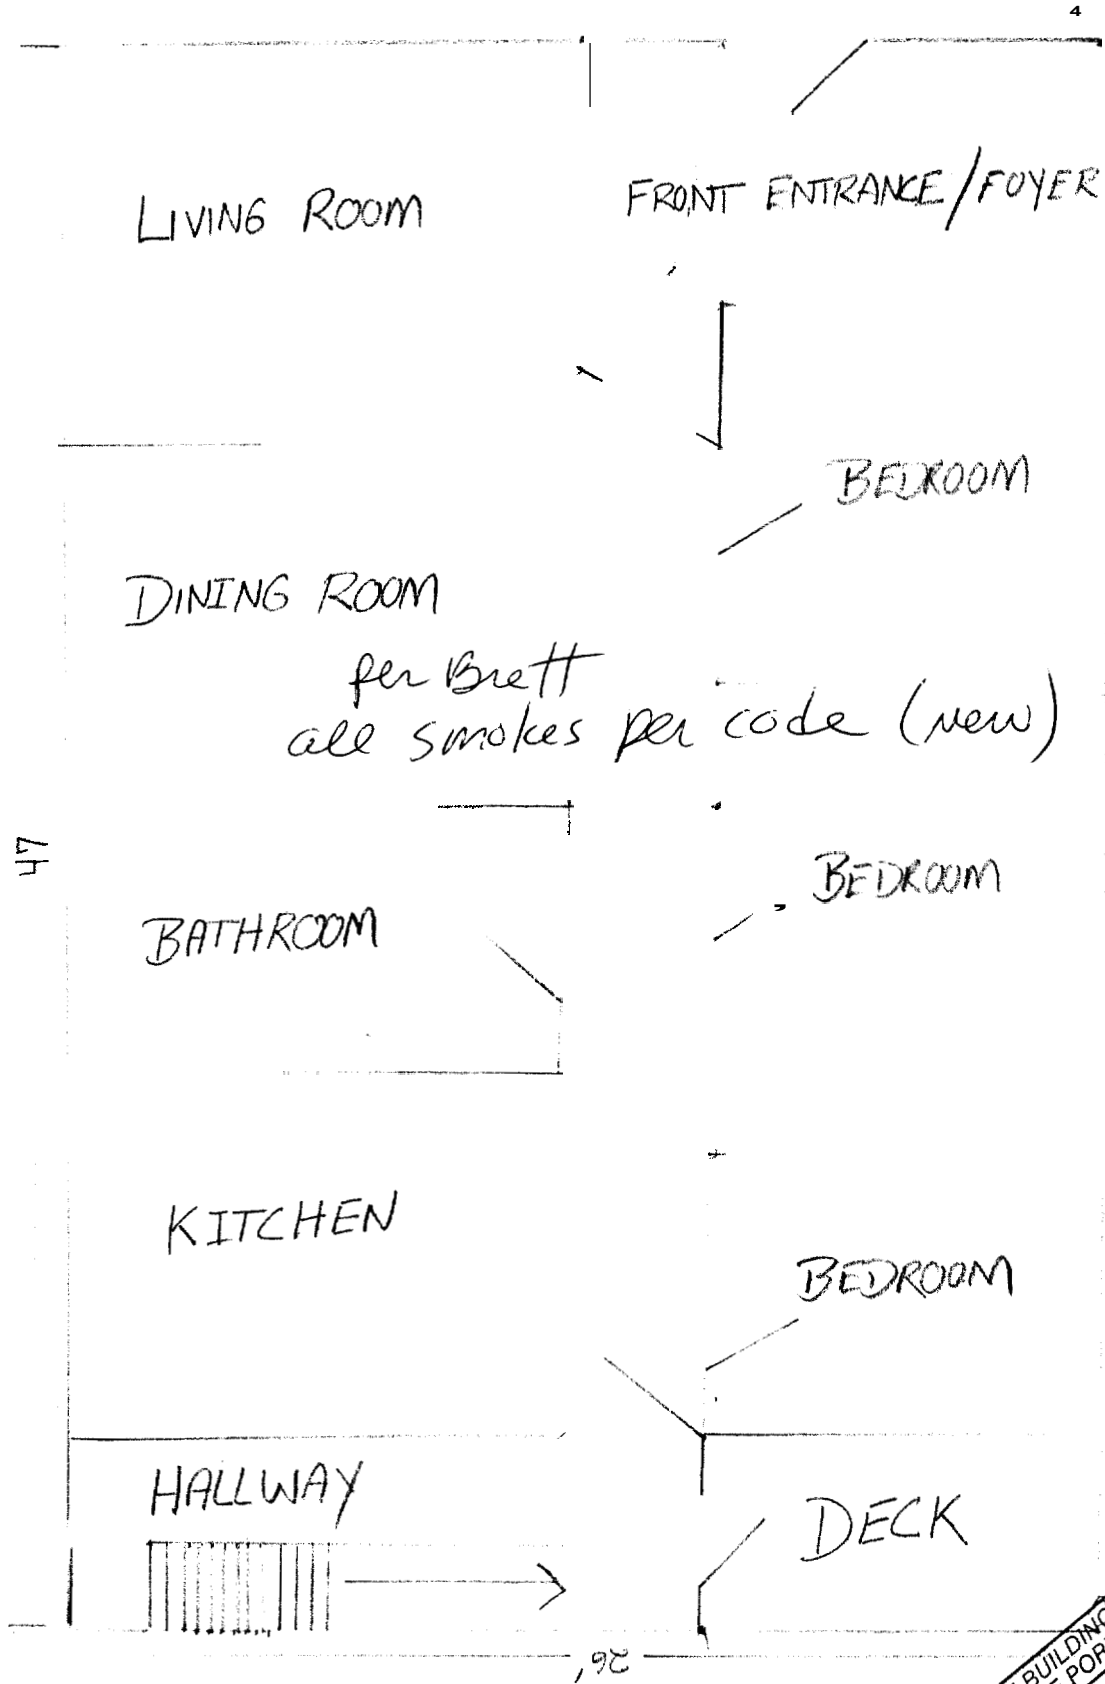 4
LIVING ROOM
FRONT ENTRANCE/FOYER
BEDROOM
DINING ROOM
per Brett
all smokes per code (new)
47
BEDROOM
BATHROOM
KITCHEN
BEDROOM
HALLWAY
DECK
26'
BUILDING